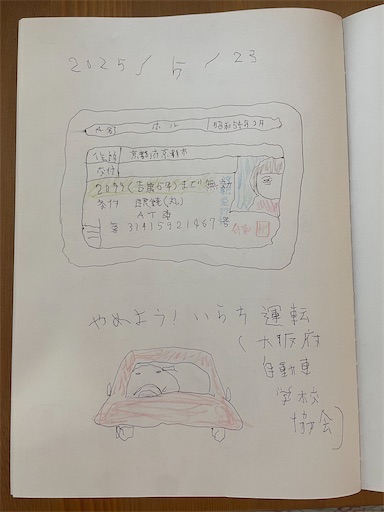 2025/5/23
氏名 ホル 昭和55年2月
住所 京都府京都市
交付
2099(吉葉54)まで無効
条件 眼鏡(丸)
AT車
第 31415921467号
やめよう!いらち運転
(大阪府
自動車
学校
協会)